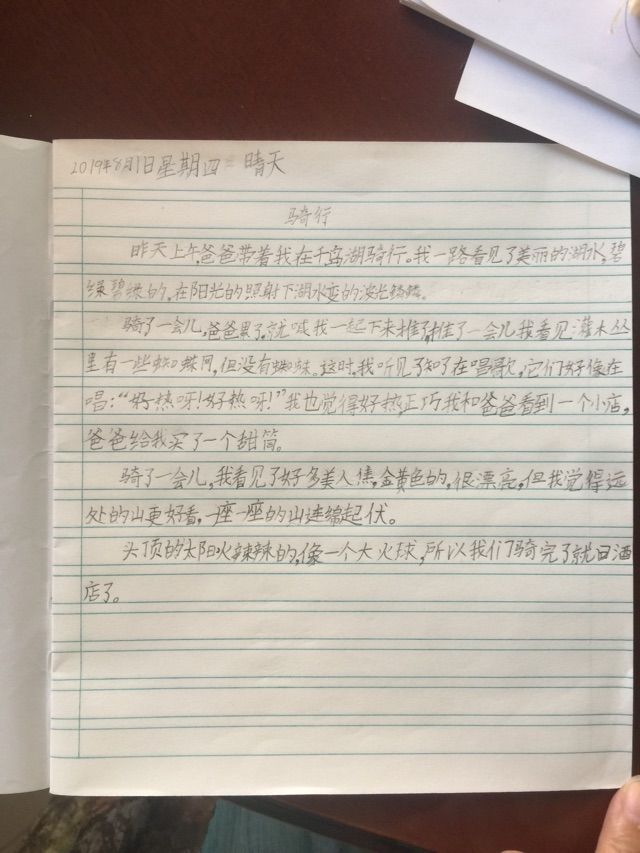 2019年8月1日星期四 晴天
骑行
昨天上午,爸爸带着我在千岛湖骑行。我一路看见了美丽的湖水,碧
绿碧绿的,在阳光的照射下湖水变的波光鳞鳞。
骑了一会儿,爸爸累了,就喊我一起下来推了推了一会儿我看见灌木丛
里有一些蜘蛛网,但没有蜘蛛。这时,我听见了知了在唱歌,它们好像在
唱:“好热呀!好热呀!”我也觉得好热,正巧我和爸爸看到一个小店,
爸爸给我买了一个甜筒。
骑了一会儿,我看见了好多美人焦,金黄色的,很漂亮,但我觉得远
处的山更好看,一座一座的山连绵起伏。
头顶的太阳火辣辣的,像一个大火球,所以我们骑完了就回酒
店了。